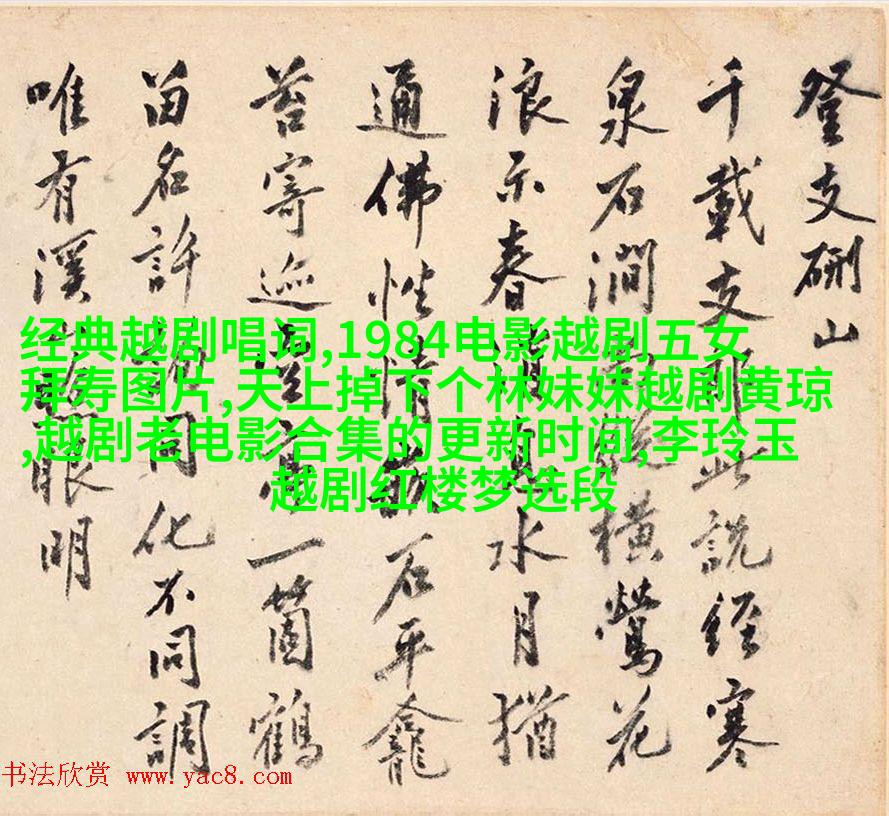 登支硎山
千載支此説經寒
泉石澗橫鶯花
浪示春水月猶
通佛性情石平龕
苔寄一箇鶴
留名許同化不同調
唯有溪照眼明
经典越剧唱词,1984电影越剧五女
拜寿图片,天上掉下个林妹妹越剧黄琼
,越剧老电影合集的更新时间,李玲玉
越剧红楼梦选段
书法欣赏 www.yac8.com